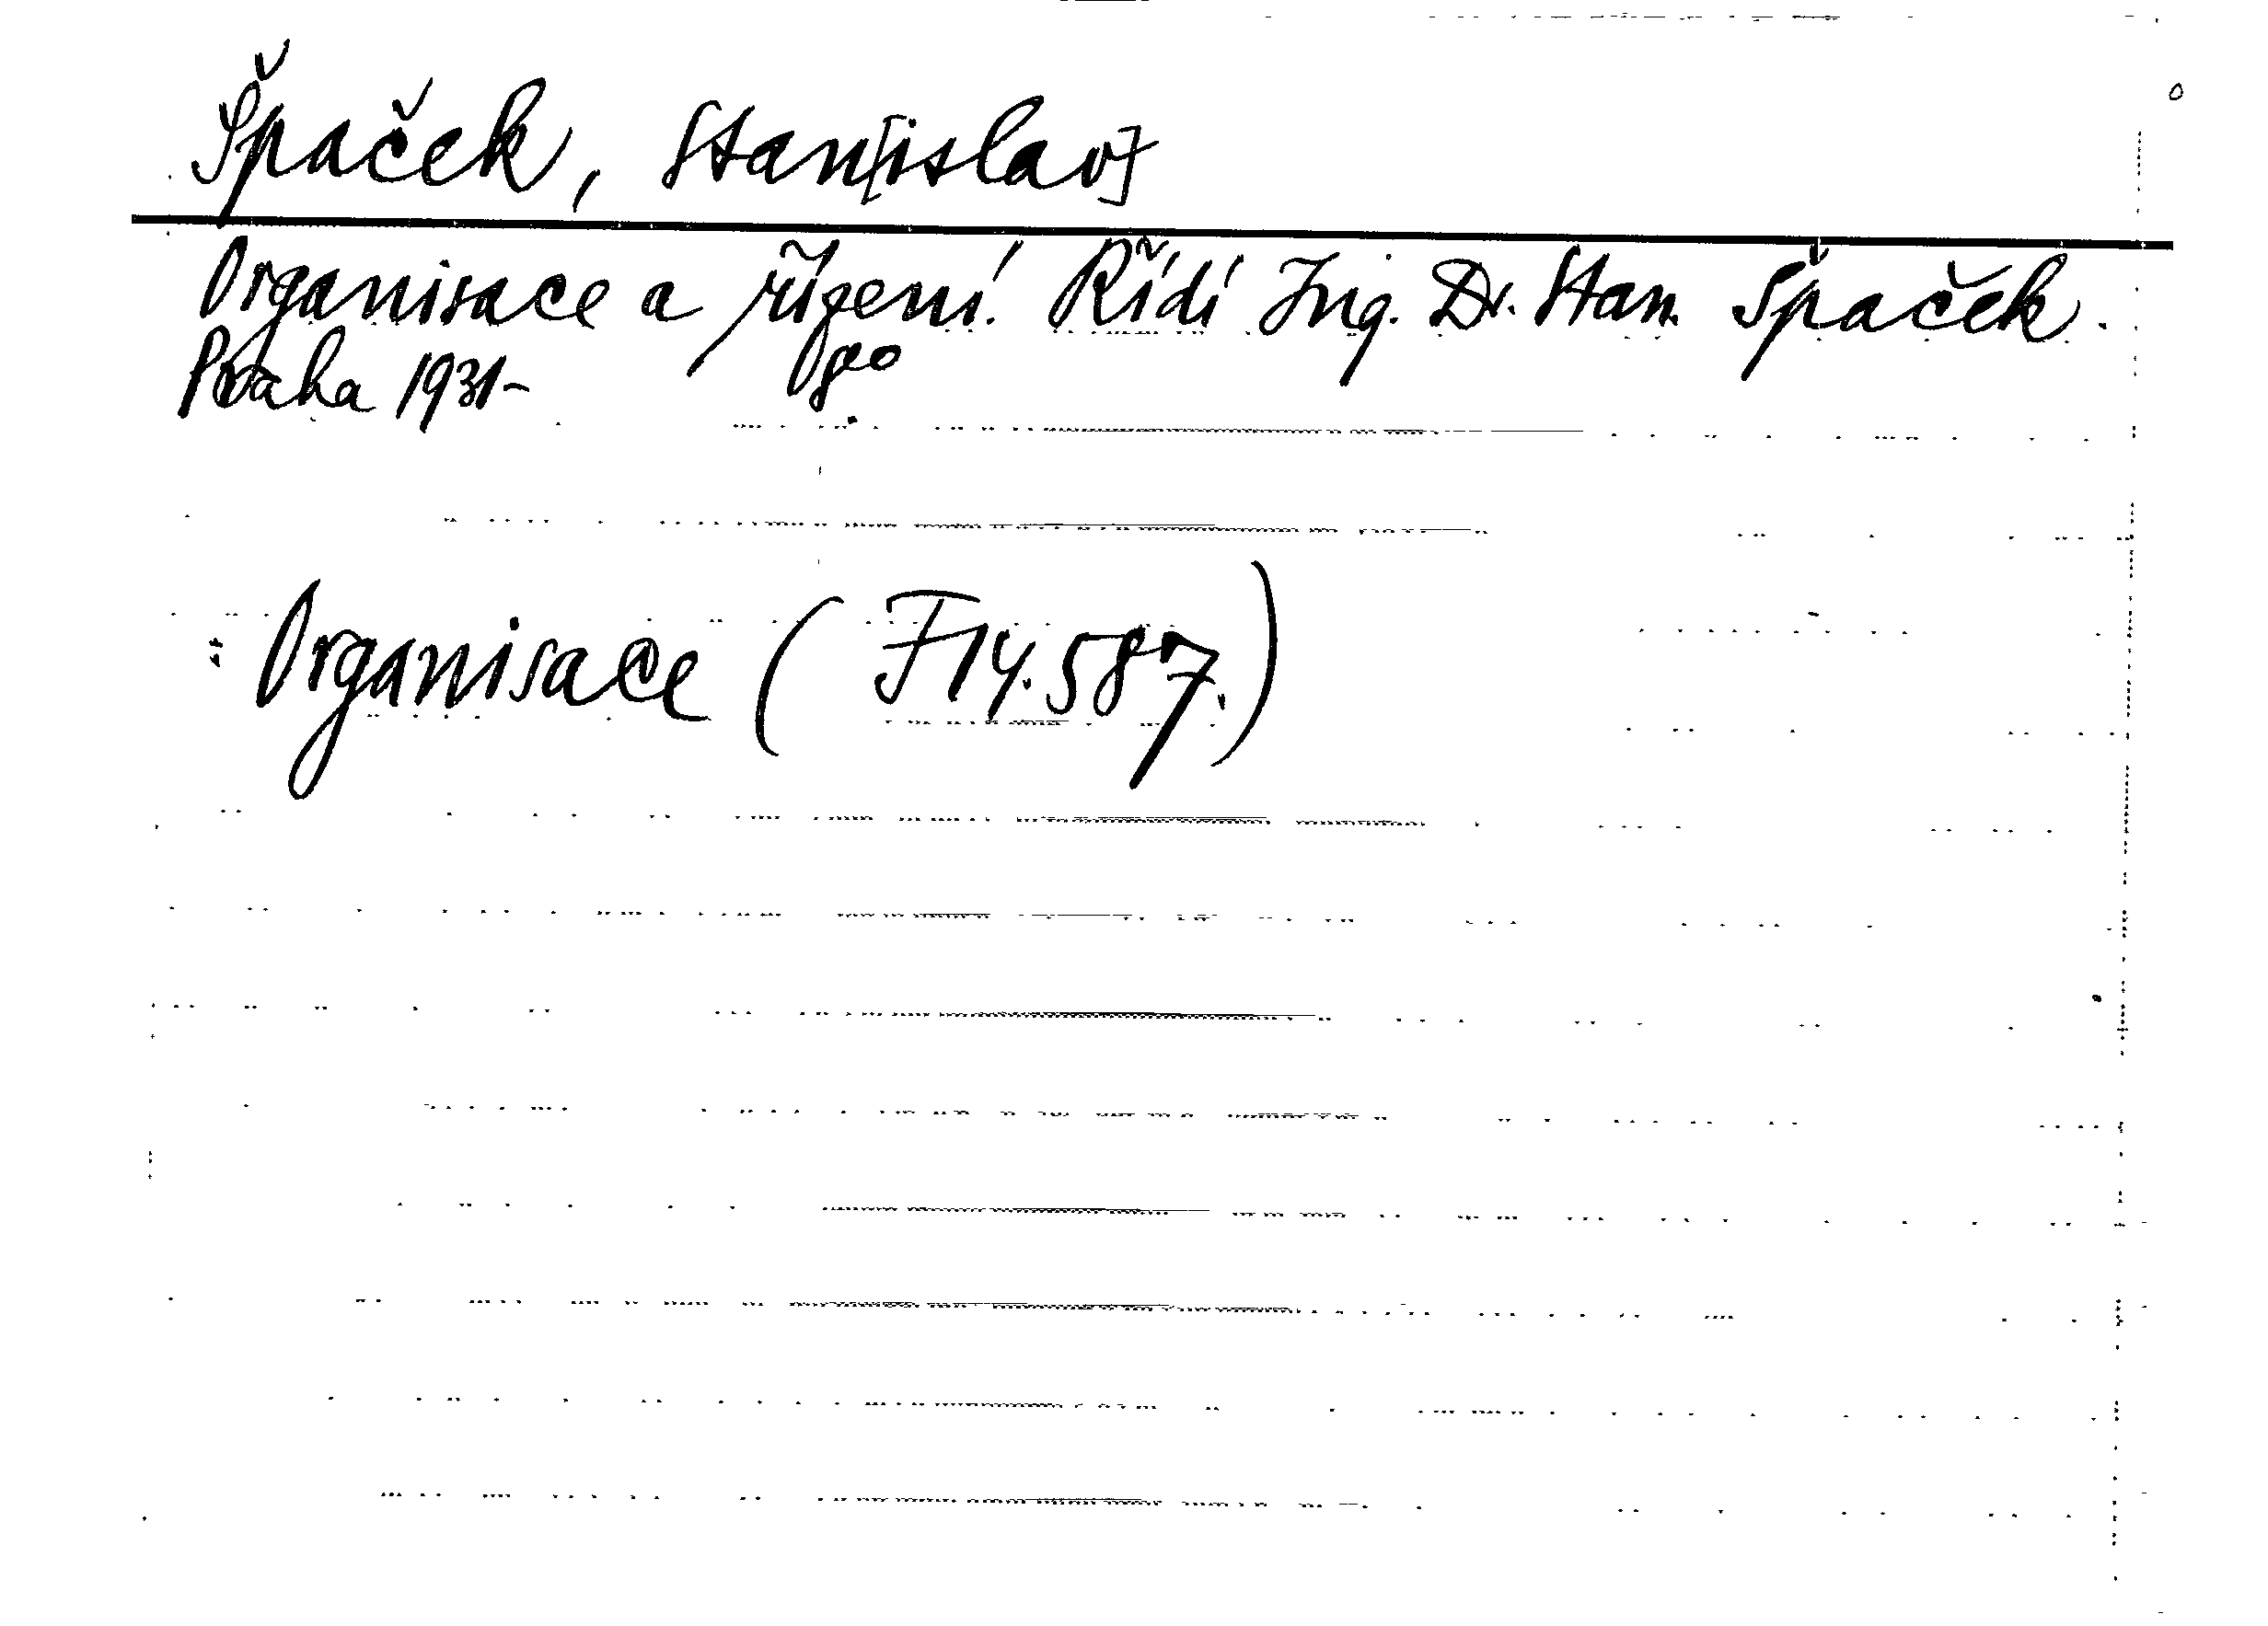 Špaček, Stan[islav]
Organisace a řízení. Řídí Ing. Dr. Stan. Špaček.
Praha 1931- 8°
: Organisace (F 14.587.)